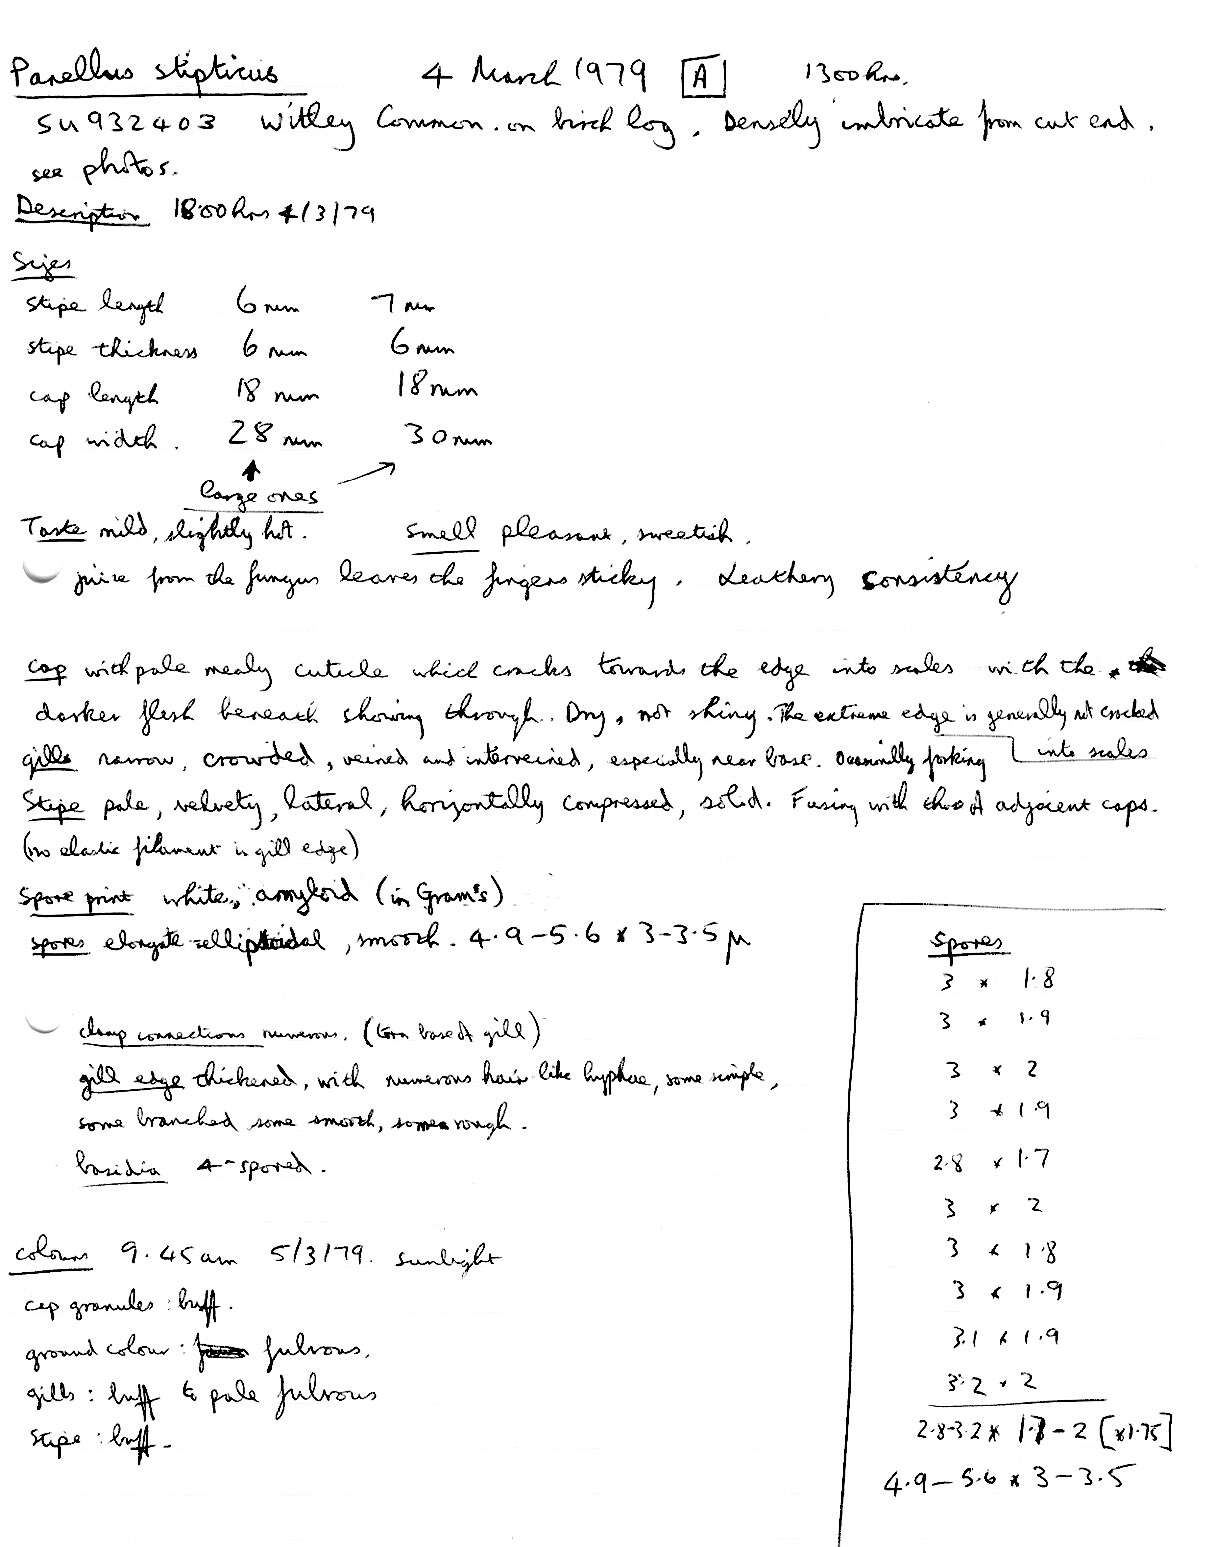 Panellus stipticus 4 March 1979 A 1300 hrs.
SU932403 Witley Common. on birch log. Densely imbricate from cut end.
see photos.
Description 18.00 hrs 4/3/79
Sizes
stipe length 6 mm 7 mm
stipe thickness 6 mm 6 mm
cap length 18 mm 18 mm
cap width. 28 mm 30 mm
large ones
Taste mild, slightly hot. smell pleasant, sweetish.
juice from the fungus leaves the fingers sticky. Leathery consistency
cap with pale mealy cuticle which cracks towards the edge into scales with the
darker flesh beneath showing through. Dry, not shiny. The extreme edge is generally not cracked
gills narrow, crowded, veined and interveined, especially near base. Occasionally forking into scales
Stipe pale, velvety, lateral, horizontally compressed, solid. Fusing with those of adjacent caps.
(no elastic filament in gill edge)
Spore print white, amyloid (in Gram's)
spores elongate-ellipsoidal, smooth. 4.9-5.6 x 3-3.5 μ
clamp connections numerous. (torn base of gill)
gill edge thickened, with numerous hair like hyphae, some simple,
some branched some smooth, some rough.
basidia 4-spored.
colours 9.45am 5/3/79. sunlight
cap granules: buff.
ground colour: fulvous.
gills: buff to pale fulvous
stipe: buff.
Spores
3 x 1.8
3 x 1.9
3 x 2
3 x 1.9
2.8 x 1.7
3 x 2
3 x 1.8
3 x 1.9
3.1 x 1.9
3.2 x 2
2.8-3.2 x 1.7-2 [x1.75]
4.9-5.6 x 3-3.5